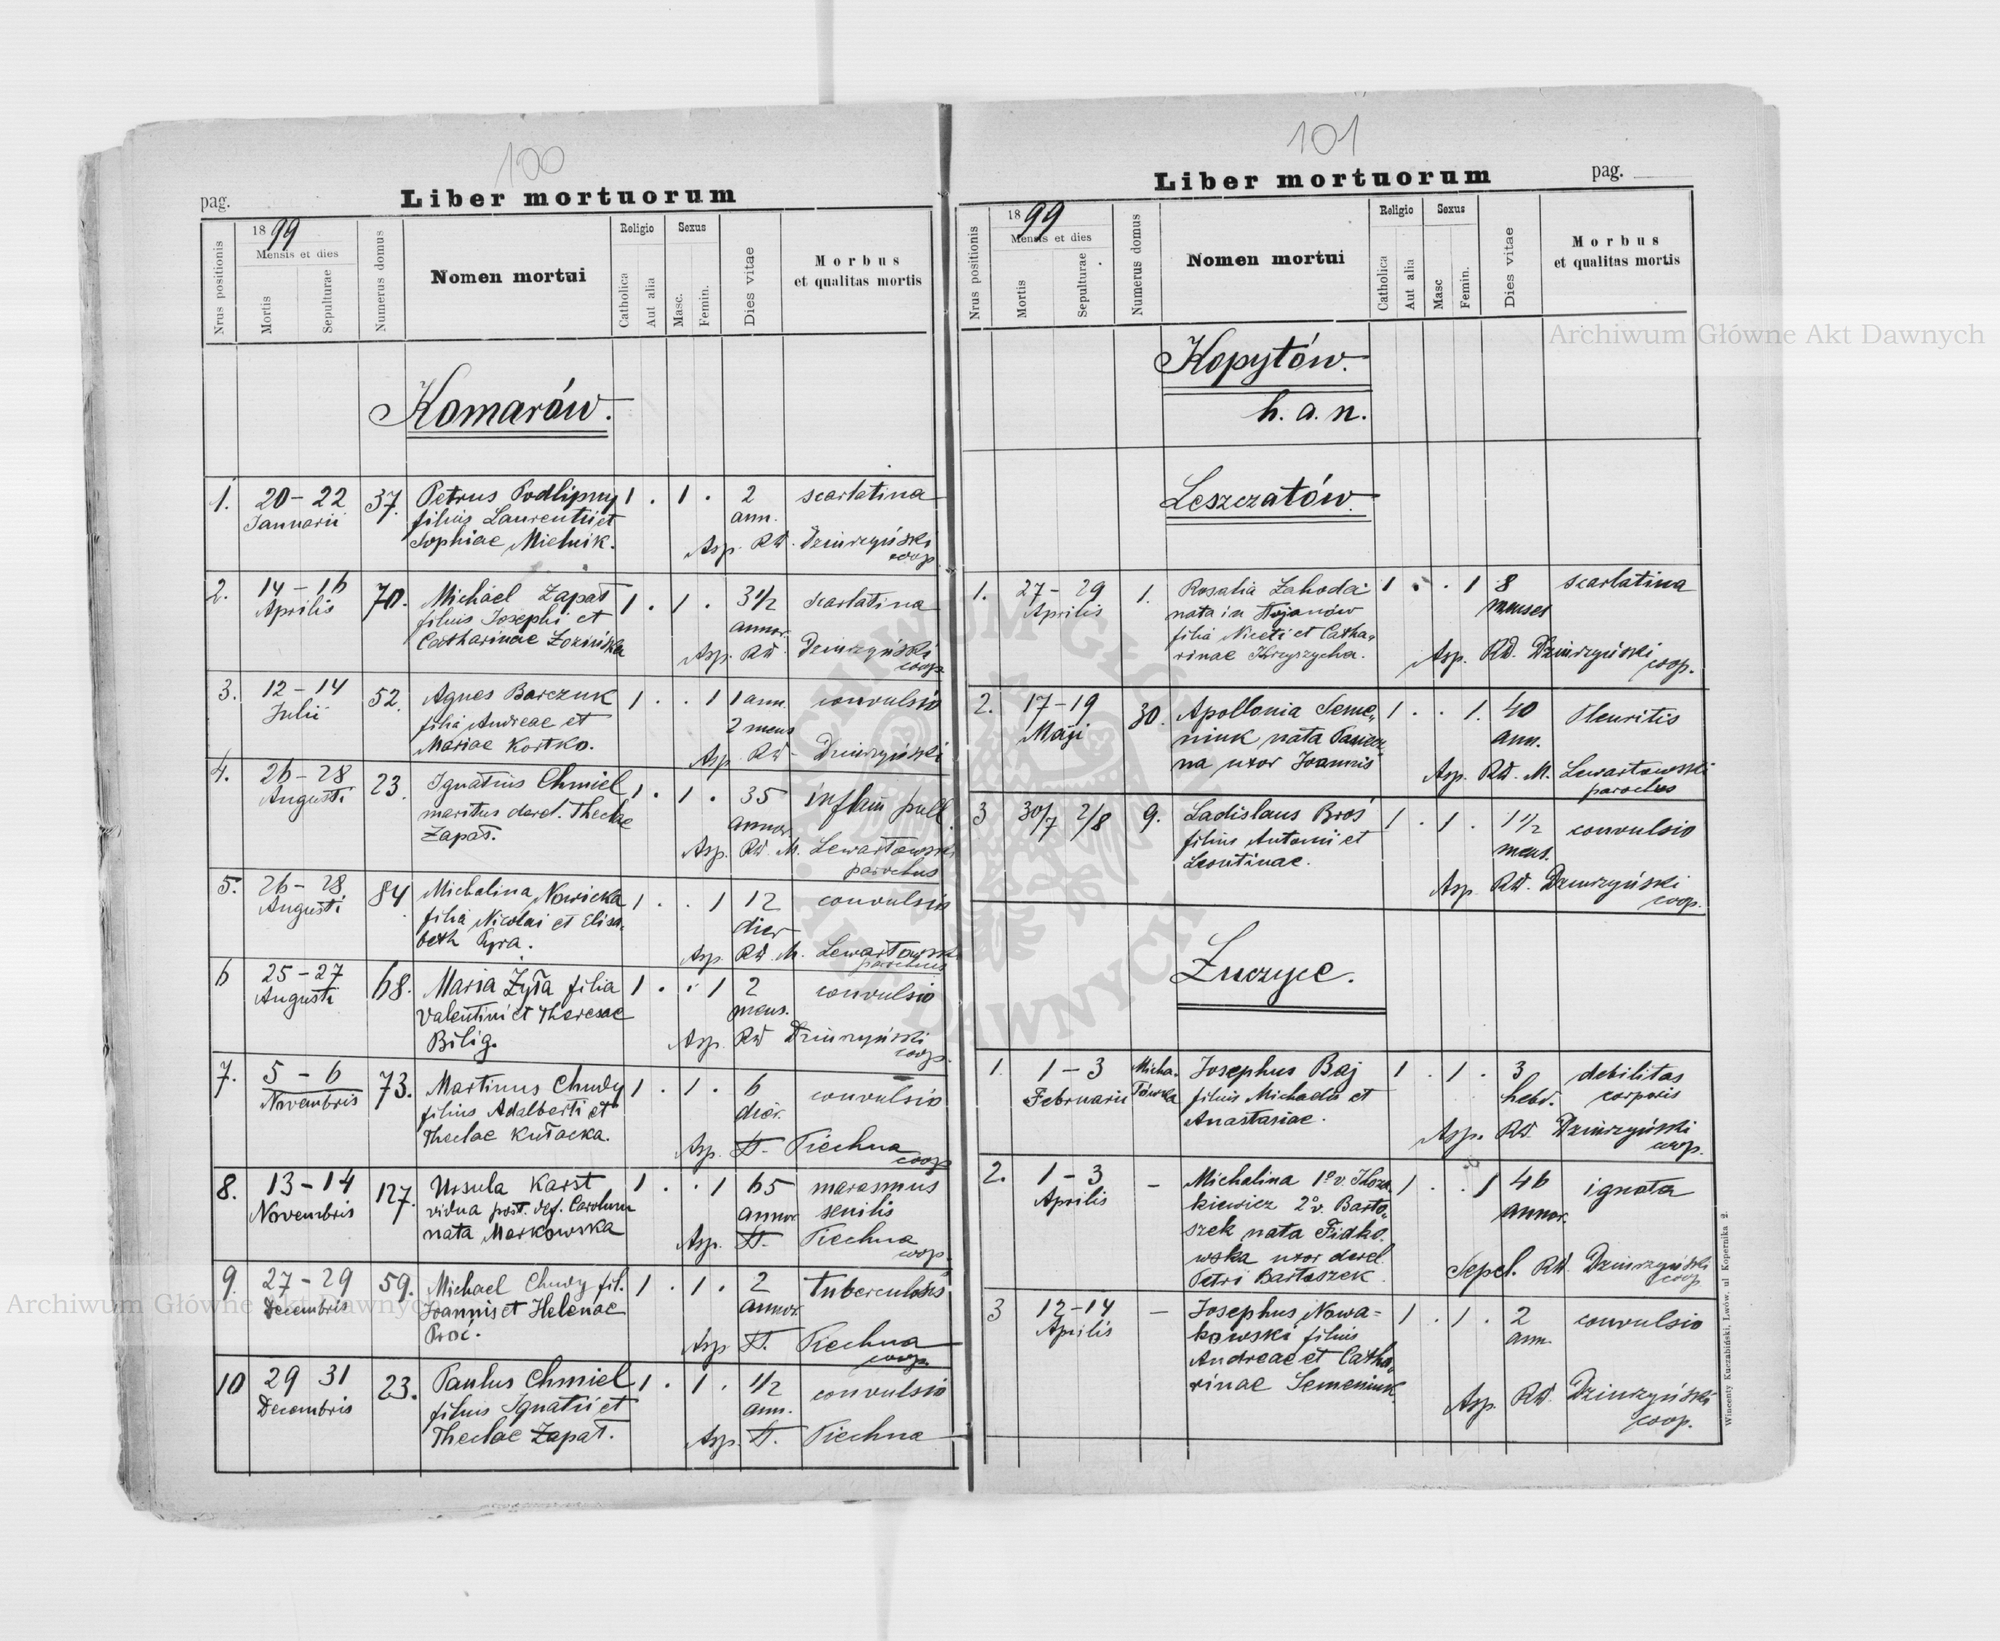 100
pag.
Liber mortuorum
Nrus positionis
1899
Mensis et dies
Mortis
Sepulturae
Numerus domus
Nomen mortui
Religio
Catholica
Aut alia
Sexus
Masc.
Femin.
Dies vitae
Morbus
et qualitas mortis
Komarów.
1. 20-22 37. Petrus Podlipny 1 . 1 . 2 scarlatina
Januarii filius Laurentii et ann.
Sophiae Mielnik. Asp. Rd. Dziurzyński
coop.
2. 14-16 70. Michael Zapał 1 . 1 . 3 1/2 scarlatina
Aprilis filius Josephi et annor.
Catharinae Asp. Rd. Dziurzyński
coop.
3. 12-14 52. Agnes Barczuk 1 . . 1 1 ann. convulsio
Julii filia Andreae et 2 mens
Mariae Kostko. Asp. Rd. Dziurzyński
4. 26-28 23. Ignatius Chmiel 1 . 1 . 35 inflam pull.
Augusti maritus derel. Theclae annor.
Zapał. Asp. Rd. M. Lewartowski
parochus
5. 26-28 84 Michalina Nowicka 1 . . 1 12 convulsio
Augusti filia Nicolai et Elisa-
beth Pyra. dier
Asp. Rd. M. Lewartowski
parochus
6 25-27 68. Maria Zyła filia 1 . . 1 2 convulsio
Augusti Valentini et Theresae mens.
Bilig. Asp. Rd Dziurzyński
coop.
7. 5-6 73. Martinus Chudy 1 . 1 . 6 convulsio
Novembris filius Adalberti et dier.
Theclae Kułacka. Asp. Piechna
coop
8. 13-14 127. Ursula Karst 1 . . 1 65 marasmus
Novembris vidua post. def. Carolum annor. senilis
nata Markowska Asp. Piechna
coop.
9. 27-29 59. Michael Chudy fil. 1 . 1 . 2 tuberculosis
Decembris Joannis et Helenae annor.
Proć. Asp. Piechna
coop.
10 29 31 23. Paulus Chmiel 1 . 1 . 1/2 convulsio
Decembris filius Ignatii et ann.
Theclae Zapał. Asp. Piechna
101
Liber mortuorum
pag.
Nrus positionis
1899
Mensis et dies
Mortis
Sepulturae
Numerus domus
Nomen mortui
Religio
Catholica
Aut alia
Sexus
Masc
Femin.
Dies vitae
Morbus
et qualitas mortis
Kopytów.
h. a. n.
Leszczatów.
1. 27-29 1. Rosalia Zahodai 1 . . 1 8 scarlatina
Aprilis nata in Stojanów menses
filia Niceti et Catha-
rinae Krzyszycha. Asp. Rd. Dziurzyński
coop.
2. 17-19 30. Apollonia Seme- 1 . . 1. 40 Pleuritis
Maji niuk, nata ann.
na uxor Joannis Asp. Rd. M. Lewartowski
parochus
3 30/7 2/8 9. Ladislaus Broś 1 . 1 . 1 1/2 convulsio
filius Antonii et mens.
Leontinae. Asp. Rd. Dziurzyński
coop.
Łuczyce.
1. 1-3 Micha- Josephus Baj 1 . 1 . 3 debilitas
Februarii łówka filius Michaelis et hebd. corporis
Anastasiae. Asp. Rd. Dziurzyński
coop.
2. 1-3 - Michalina 1º v 1 . . 1 46 ignota
Aprilis kiewicz 2º v. Barto- annor.
szek nata Fidko-
wska uxor derel.
Petri Bartoszek. Sepel. Rd. Dziurzyński
coop
3 12-14 - Josephus Nowa- 1 . 1 . 2 convulsio
Aprilis kowski filius ann.
Andreae et Catha-
rinae Semeniuk Asp. Rd. Dziurzyński
coop.
Wincenty Kuczabiński, Lwów, ul Kopernika 2.
Archiwum Główne Akt Dawnych
Archiwum Główne Akt Dawnych
ARCHIWUM GŁÓWNE AKT DAWNYCH